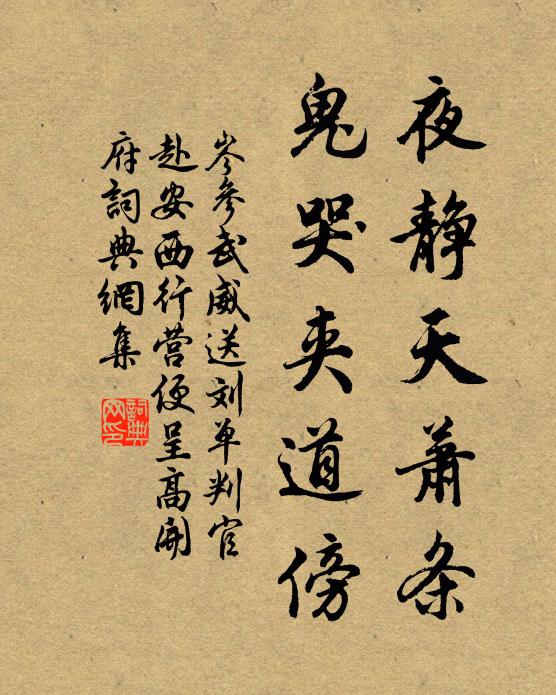 夜静天萧条
鬼哭夹道傍
岑参武威送刘单判官
赴安西行营便呈高开
府词典网集
词典网印